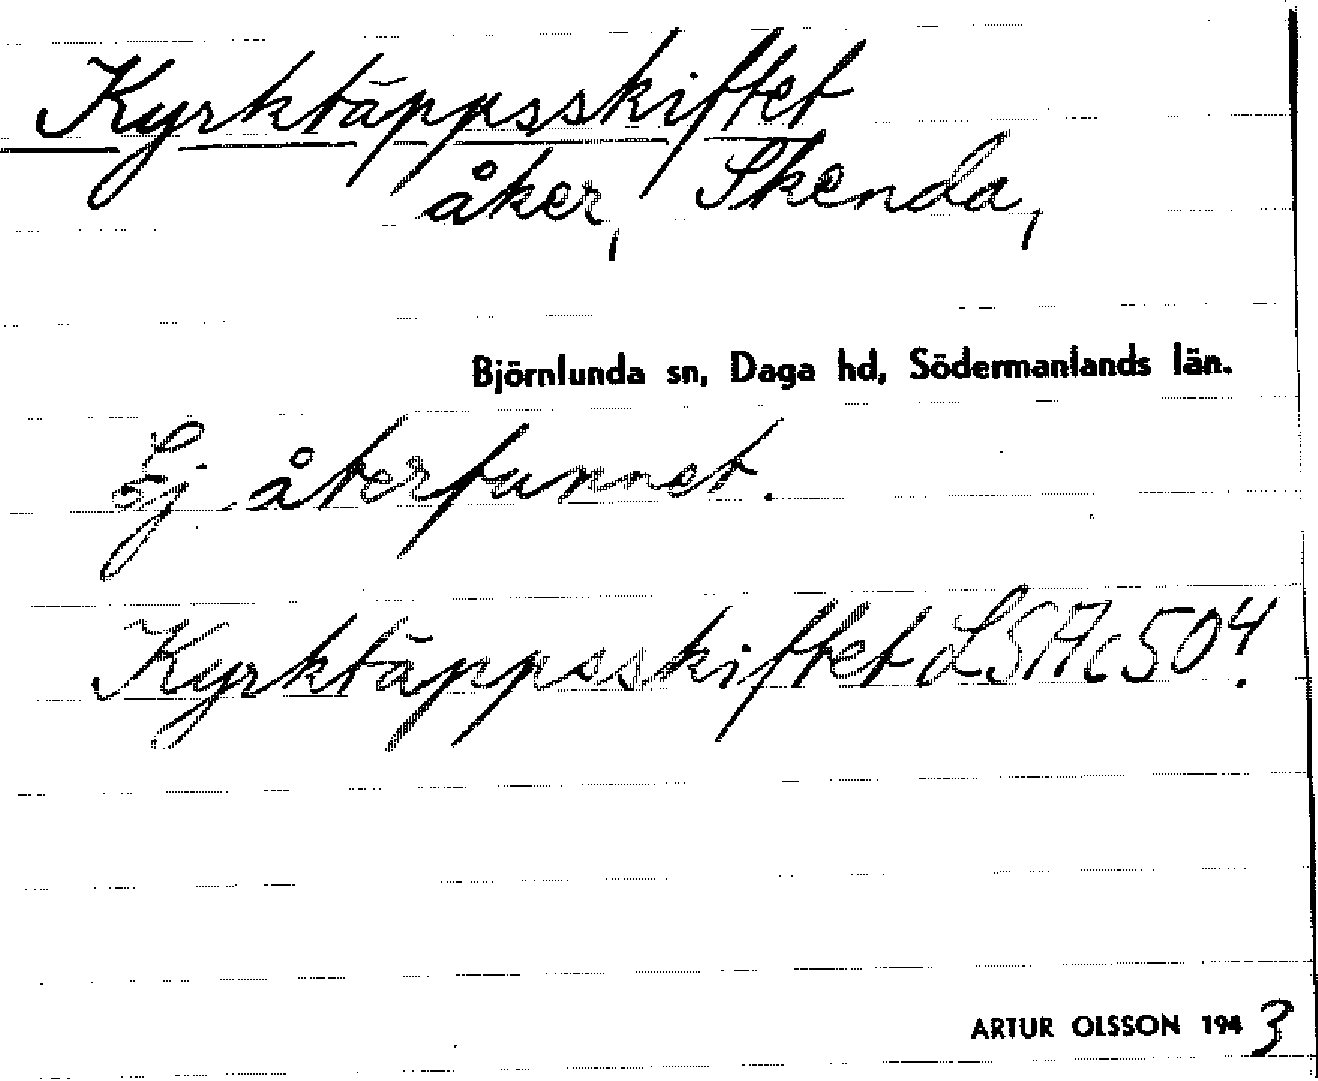 Kyrktäppsskiftet
åker, Skenda,
Björnlunda sn, Daga hd, Södermanlands län.
Ej återfunnet.
Kyrktäppsskiftet LSA c 504.
ARTUR OLSSON 1943